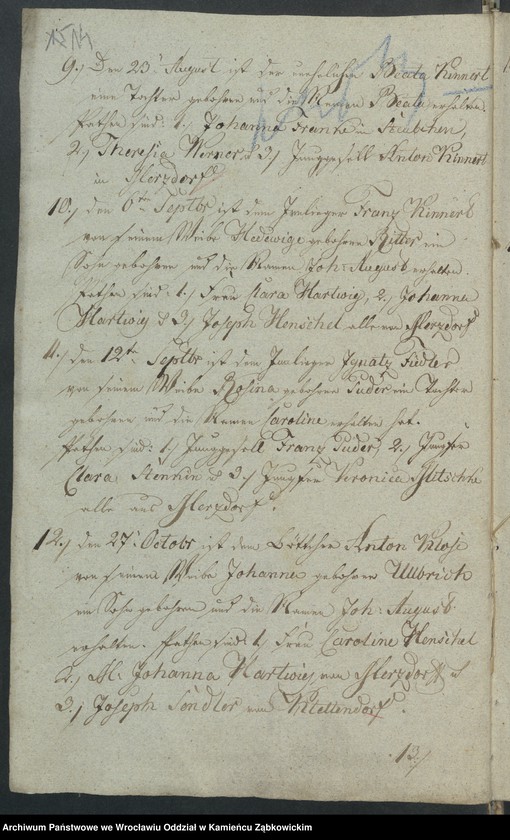 9.) Den 23t August ist der unehelichen Beata Kinnert
eine Tochter gebohren und die Namen Beate erhalten.
Pathen sind: 1.) Johanna Franke in
2.) Theresia Werner u 3.) Junggesell Anton Kinnert
in Herzdorf
10.) den 6ten Septbr ist dem Inlieger Franz Kinnert
von seinem Weibe Hedewige gebohrne Ritter ein
Sohn gebohren und die Namen Joh: August erhalten.
Pathen sind: 1.) Frau Clara Hartwig, 2.) Johanna
Hartwig u 3.) Joseph Henschel alle von Herzdorf
den 12ten Septbr ist dem Inlieger Ignatz Fiedler
von seinem Weibe Rosina gebohrne Tuder ein Tochter
gebohren und die Namen Caroline erhalten hat.
Pathen sind: 1.) Junggesell Franz Tuder, 2.) Jungfer
Clara u 3.) Jungfer Veronica
alle aus Herzdorf.
12.) den 27t Octobr ist dem Böttcher Anton Klose
von seinem Weibe Johanna gebohrne Ullbrich
ein Sohn gebohren und die Namen Joh: August
erhalten. Pathen sind: 1.) Frau Caroline Henschel
2.) Johanna Hartwig von Herzdorf u
3.) Joseph Sendler von
13.)
Archiwum Państwowe we Wrocławiu Oddział w Kamieńcu Ząbkowickim